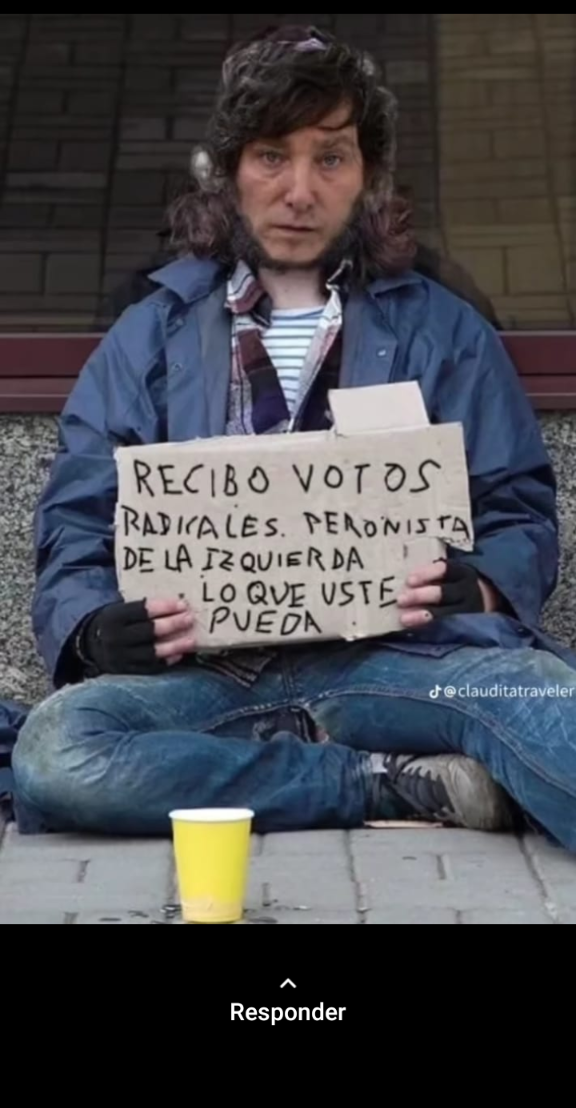 RECIBO VOTOS
RADICALES. PERONISTA
DE LA IZQUIERDA
. LO QUE USTE
PUEDA
@clauditatraveler
Responder